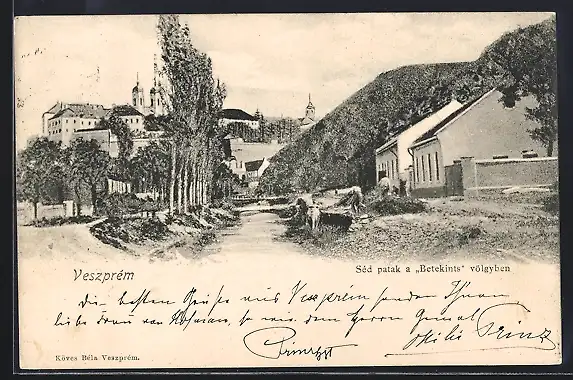 Veszprém
Séd patak a „Betekints" völgyben
die besten Grüße aus Veszprém senden Ihnen
liebe Frau von Hofmann, so wie dem Herrn Gemal
Prinz
Köves Béla Veszprém.